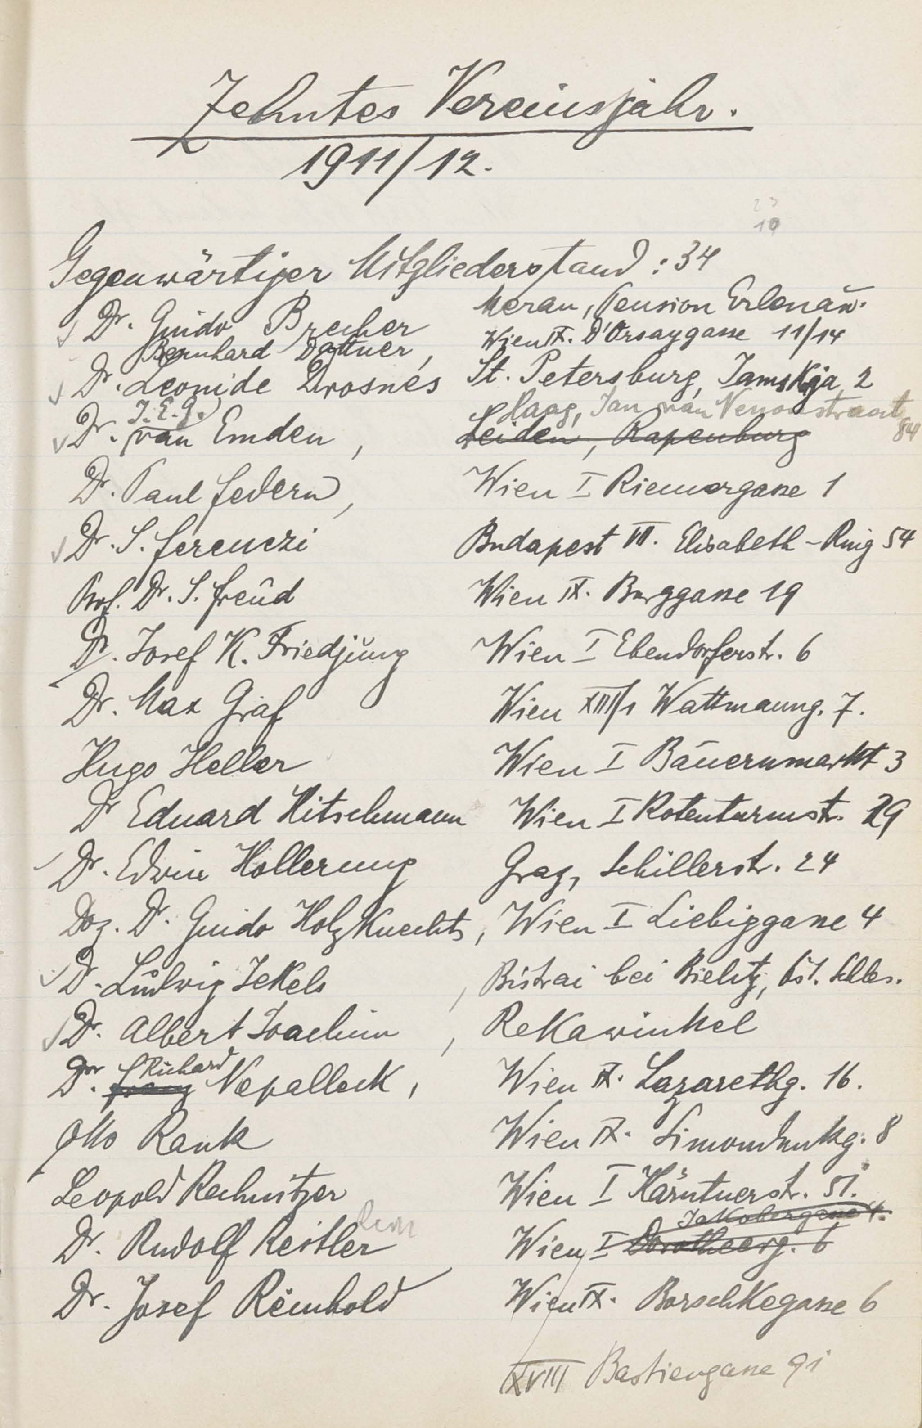 Zehntes Vereinsjahr.
1911/12.
19
Gegenwärtiger Mitgliederstand: 34
Dr. Guido Brecher Meran, Pension Erlenau.
Bernhard Dattner, Wien IX. D'Orsaygasse 11/14
Dr. Leonide Drosnés St. Petersburg, Jamskja 2
J. E. G. Haag, Jan van straat 84
Dr. van Emden, Leiden, Rapenburg
Dr. Paul Federn, Wien I Riemergasse 1
Dr. S. Ferenczi Budapest VII. Elisabeth-Ring 54
Prof. Dr. S. Freud Wien IX. Berggasse 19
Dr. Josef K. Friedjung Wien I Ebendorferstr. 6
Dr. Max Graf Wien XIII/1 Wattmanng. 7.
Hugo Heller Wien I Bauernmarkt 3
Dr Eduard Hitschmann Wien I Rotenturmstr. 29
Dr. Edwin Hollerung Graz, Schillerstr. 24
Doz. Dr. Guido Holzknecht, Wien I Liebiggasse 4
Dr. Ludwig Jekels, Bistrai bei Bielitz, öst. Schles.
Dr. Albert Joachim, Rekawinkel
Richard
Dr. Franz Nepalleck, Wien IX. Lazarethg. 16.
Otto Rank Wien IX. Simondenkg. 8
Leopold Rechnitzer Wien I Kärntnerstr. 51.
Jakobergasse 4.
Dr. Rudolf Reitler Wien I Dorotheerg. 6
Dr. Josef Reinhold Wien IX. Borschkegasse 6
XVIII Bastiengasse 91